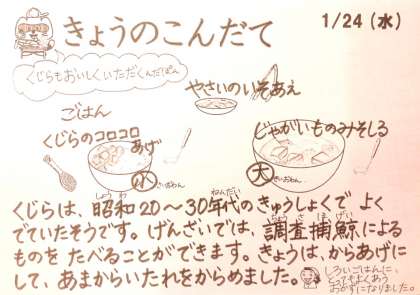 きょうのこんだて
1/24（水）
くじらもおいしくいただくんだぱん
やさいのいそあえ
ごはん
くじらのコロコロあげ
小さいおわん
じゃがいものみそしる
大きいおわん
くじらは、昭和20～30年代のきゅうしょくで よく
でていたそうです。げんざいでは、調査捕鯨による
ものを たべることができます。きょうは、からあげに
して、あまからいたれをからめました。
しろいごはんに、
とってもよくあう
おかずになりました。